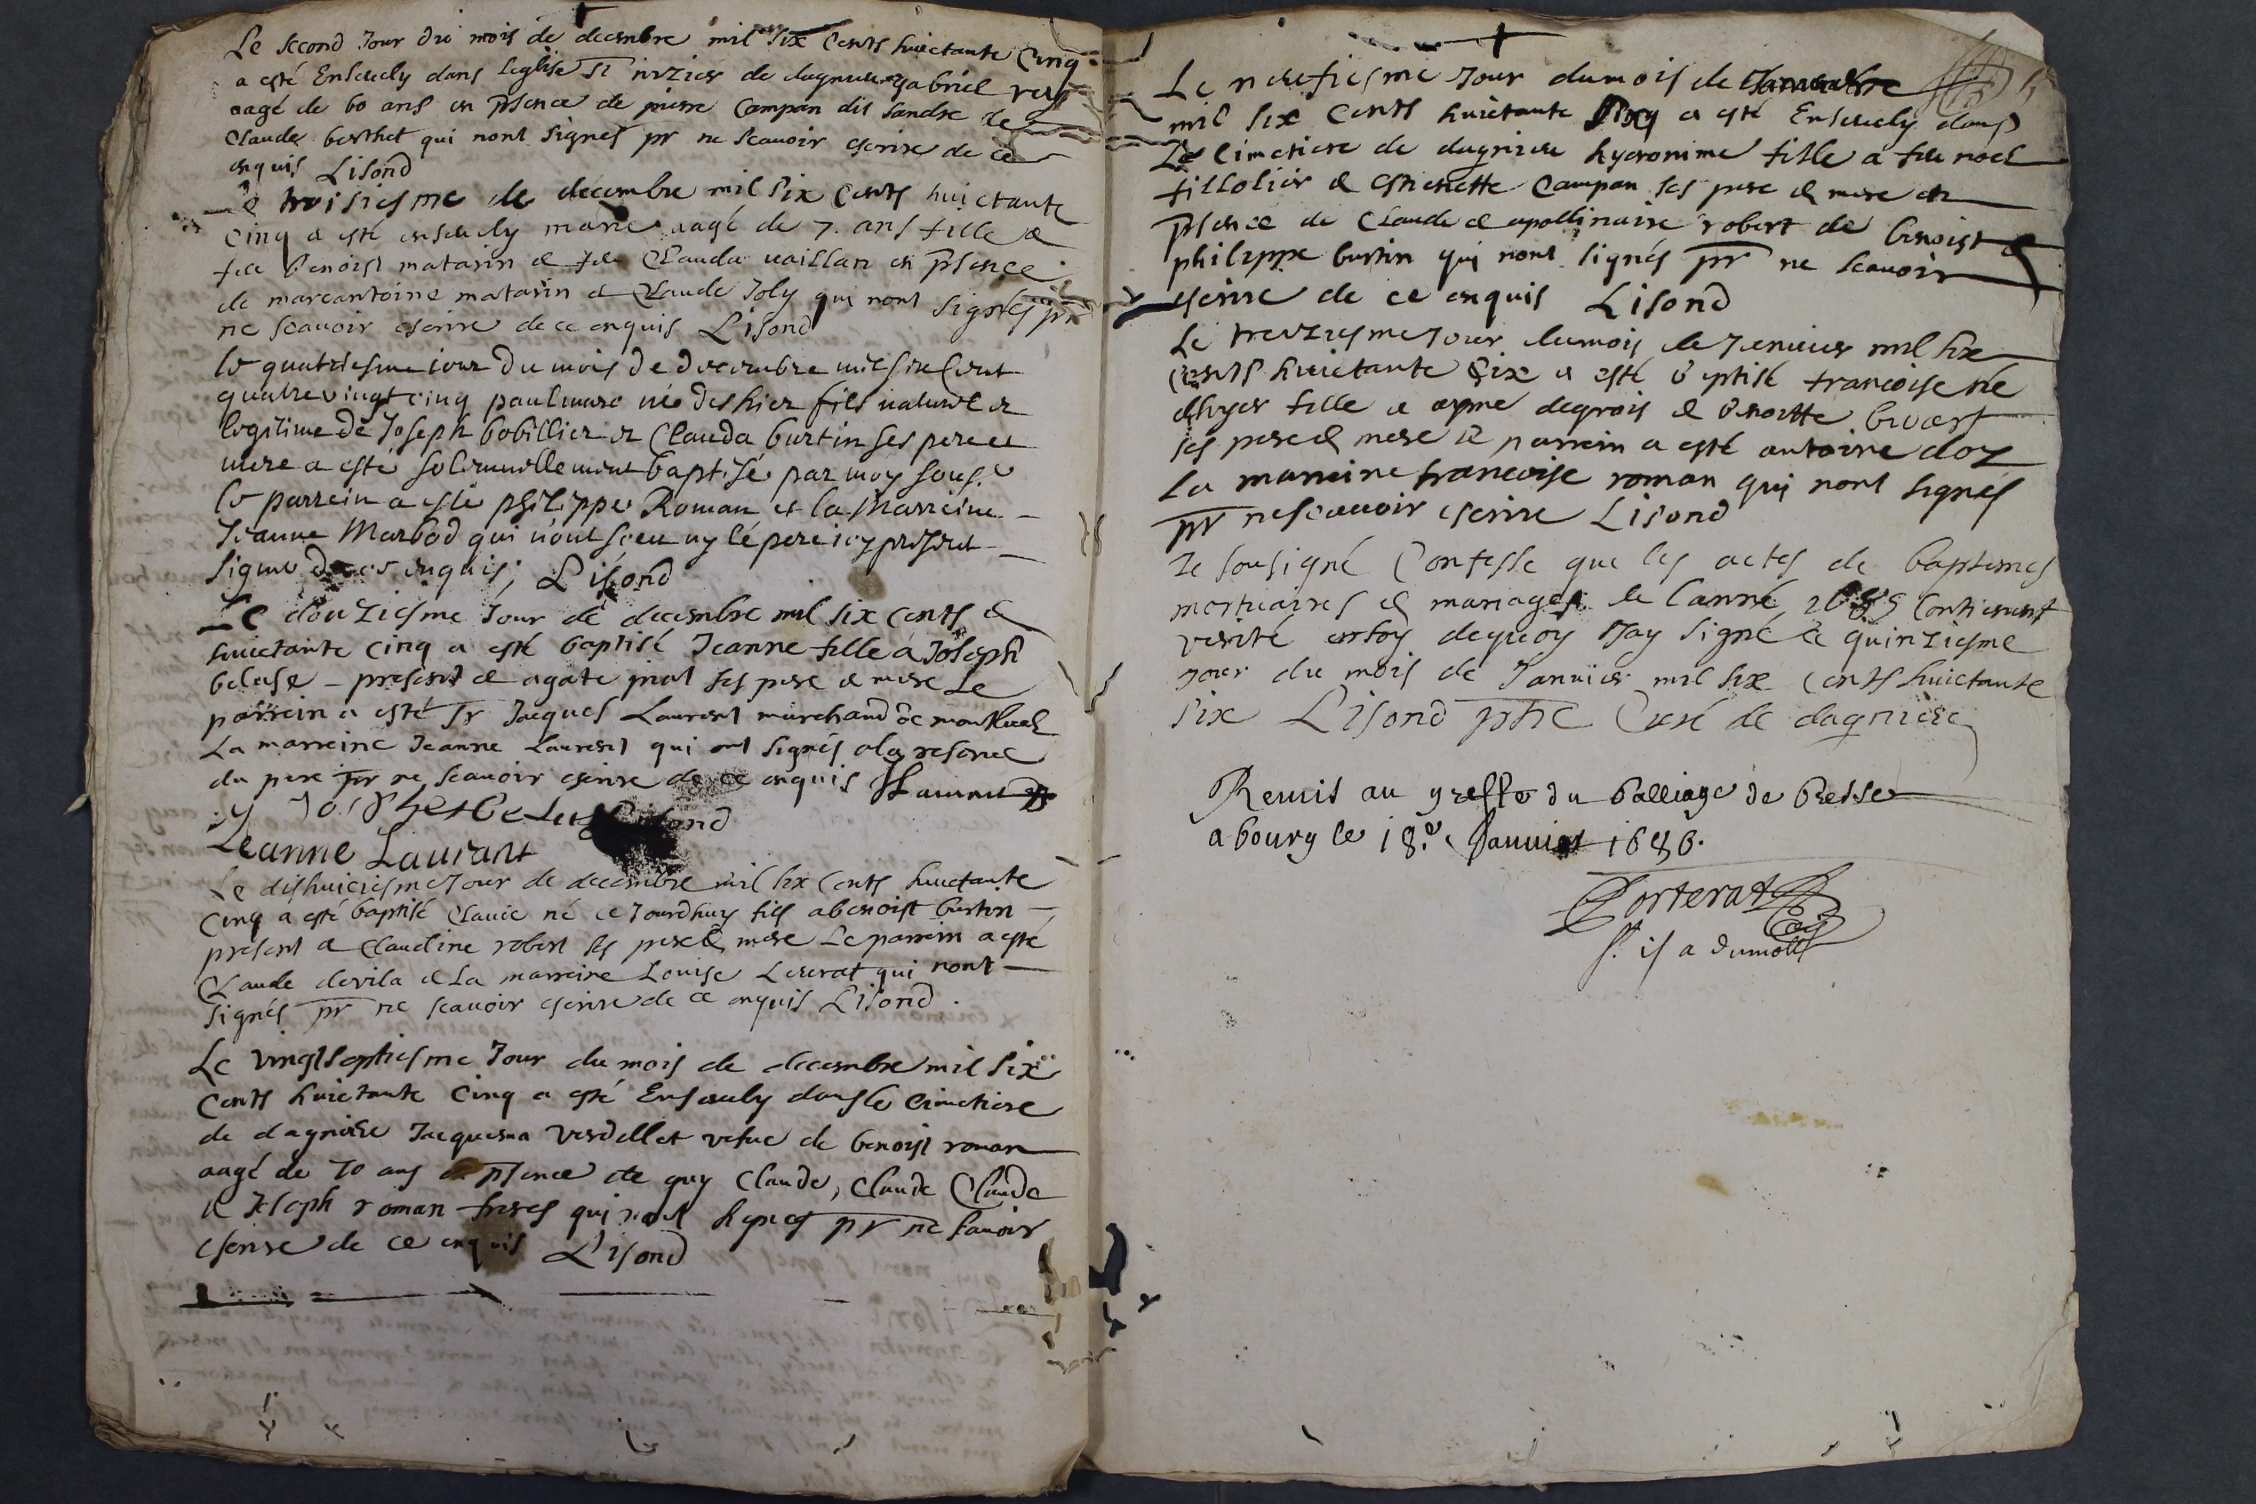 Le second Jour du mois de decembre mil six cents huictante cinq
a esté Ensevely dans leglise St nizier de dagnieu gabriel
aagé de 60 ans en psence de pierre Campan dit Sandre de
Claude berthet qui nont signés pr ne scavoir escrire de ce
enquis Lisond
Le troisiesme de decembre mil six cents huictante
cinq a esté ensevely marie aagé de 7. ans fille a
feu benoist matarin & feu Clauda vaillan en psence
de marcantoine matarin & Claude Joly qui nont signés pr
ne scavoir escrire de ce enquis Lisond
le quatriesme iour du mois de decembre mil six cent
quatre vingt cinq paul marc né des hier fils naturel et
legitime de Joseph bobillier et Clauda burtin ses pere et
mere a esté solemnellement baptisé par moy sous.é
le parrein a esté philippe Roman et la Marreine
Jeanne Marbod qui n'ont sceu ny le pere icy present
signer de ce enquis; Lisond
Le douziesme Jour de decembre mil six cents &
huictante cinq a esté baptisé Jeanne fille a Joseph
beluse present & agate pint ses pere & mere Le
parrein a esté Sr Jacques Laurent marchand de montluel
La marreine Jeanne Laurent qui ont signés a la reserve
du pere pr ne scavoir escrire de ce enquis Laurent
Lisond
Jeanne Laurant
Le dishuictiesme Jour de decembre mil six cents huictante
cinq a esté baptisé Claude né ce Jourdhuy fils a benoist burtin
present & Claudine robert ses pere & mere Le parrein a esté
Claude devila & La marreine Louise Leverat qui nont
signés pr ne scavoir escrire de ce enquis Lisond.
Le vingtseptiesme Jour du mois de decembre mil six
cents huictante cinq a esté Ensevely dans le cimetiere
de dagnieu Jaquema verdellet vefue de benoist roman
aagé de 70 ans en psence de guy Claude, Claude Claude
& Joseph roman freres qui nont signes pr ne scavoir
escrire de ce enquis Lisond
Le neufiesme Jour du mois de
mil six cents huictante a esté Ensevely dans
Le cimetiere de dagnieu hyeronime fille a feu noel
fillolier & estienette Campan ses pere & mere en
psence de Claude & apollinaire robert de benoist &
philippe burtin qui nont signés pr ne scavoir
escrire de ce enquis Lisond
Le treiziesme Jour du mois de Jenvier mil six
cents huictante six a esté baptisé francoise née
dhyer fille a ayme degrois & benoitte buert
ses pere & mere le parrein a esté antoine doz
La marreine francoise roman qui nont signés
pr ne scavoir escrire Lisond
Je sousigné Confesse que les actes de baptemes
mortuaires & mariages de lanné 1685 Contienent
verité en foy dequoy Jay signé ce quinziesme
jour du mois de Janvier mil six cents huictante
six Lisond ptre Curé de dagnieu
Remis au greffe du balliage de bresse
a bourg le 18.e Janvier 1686.